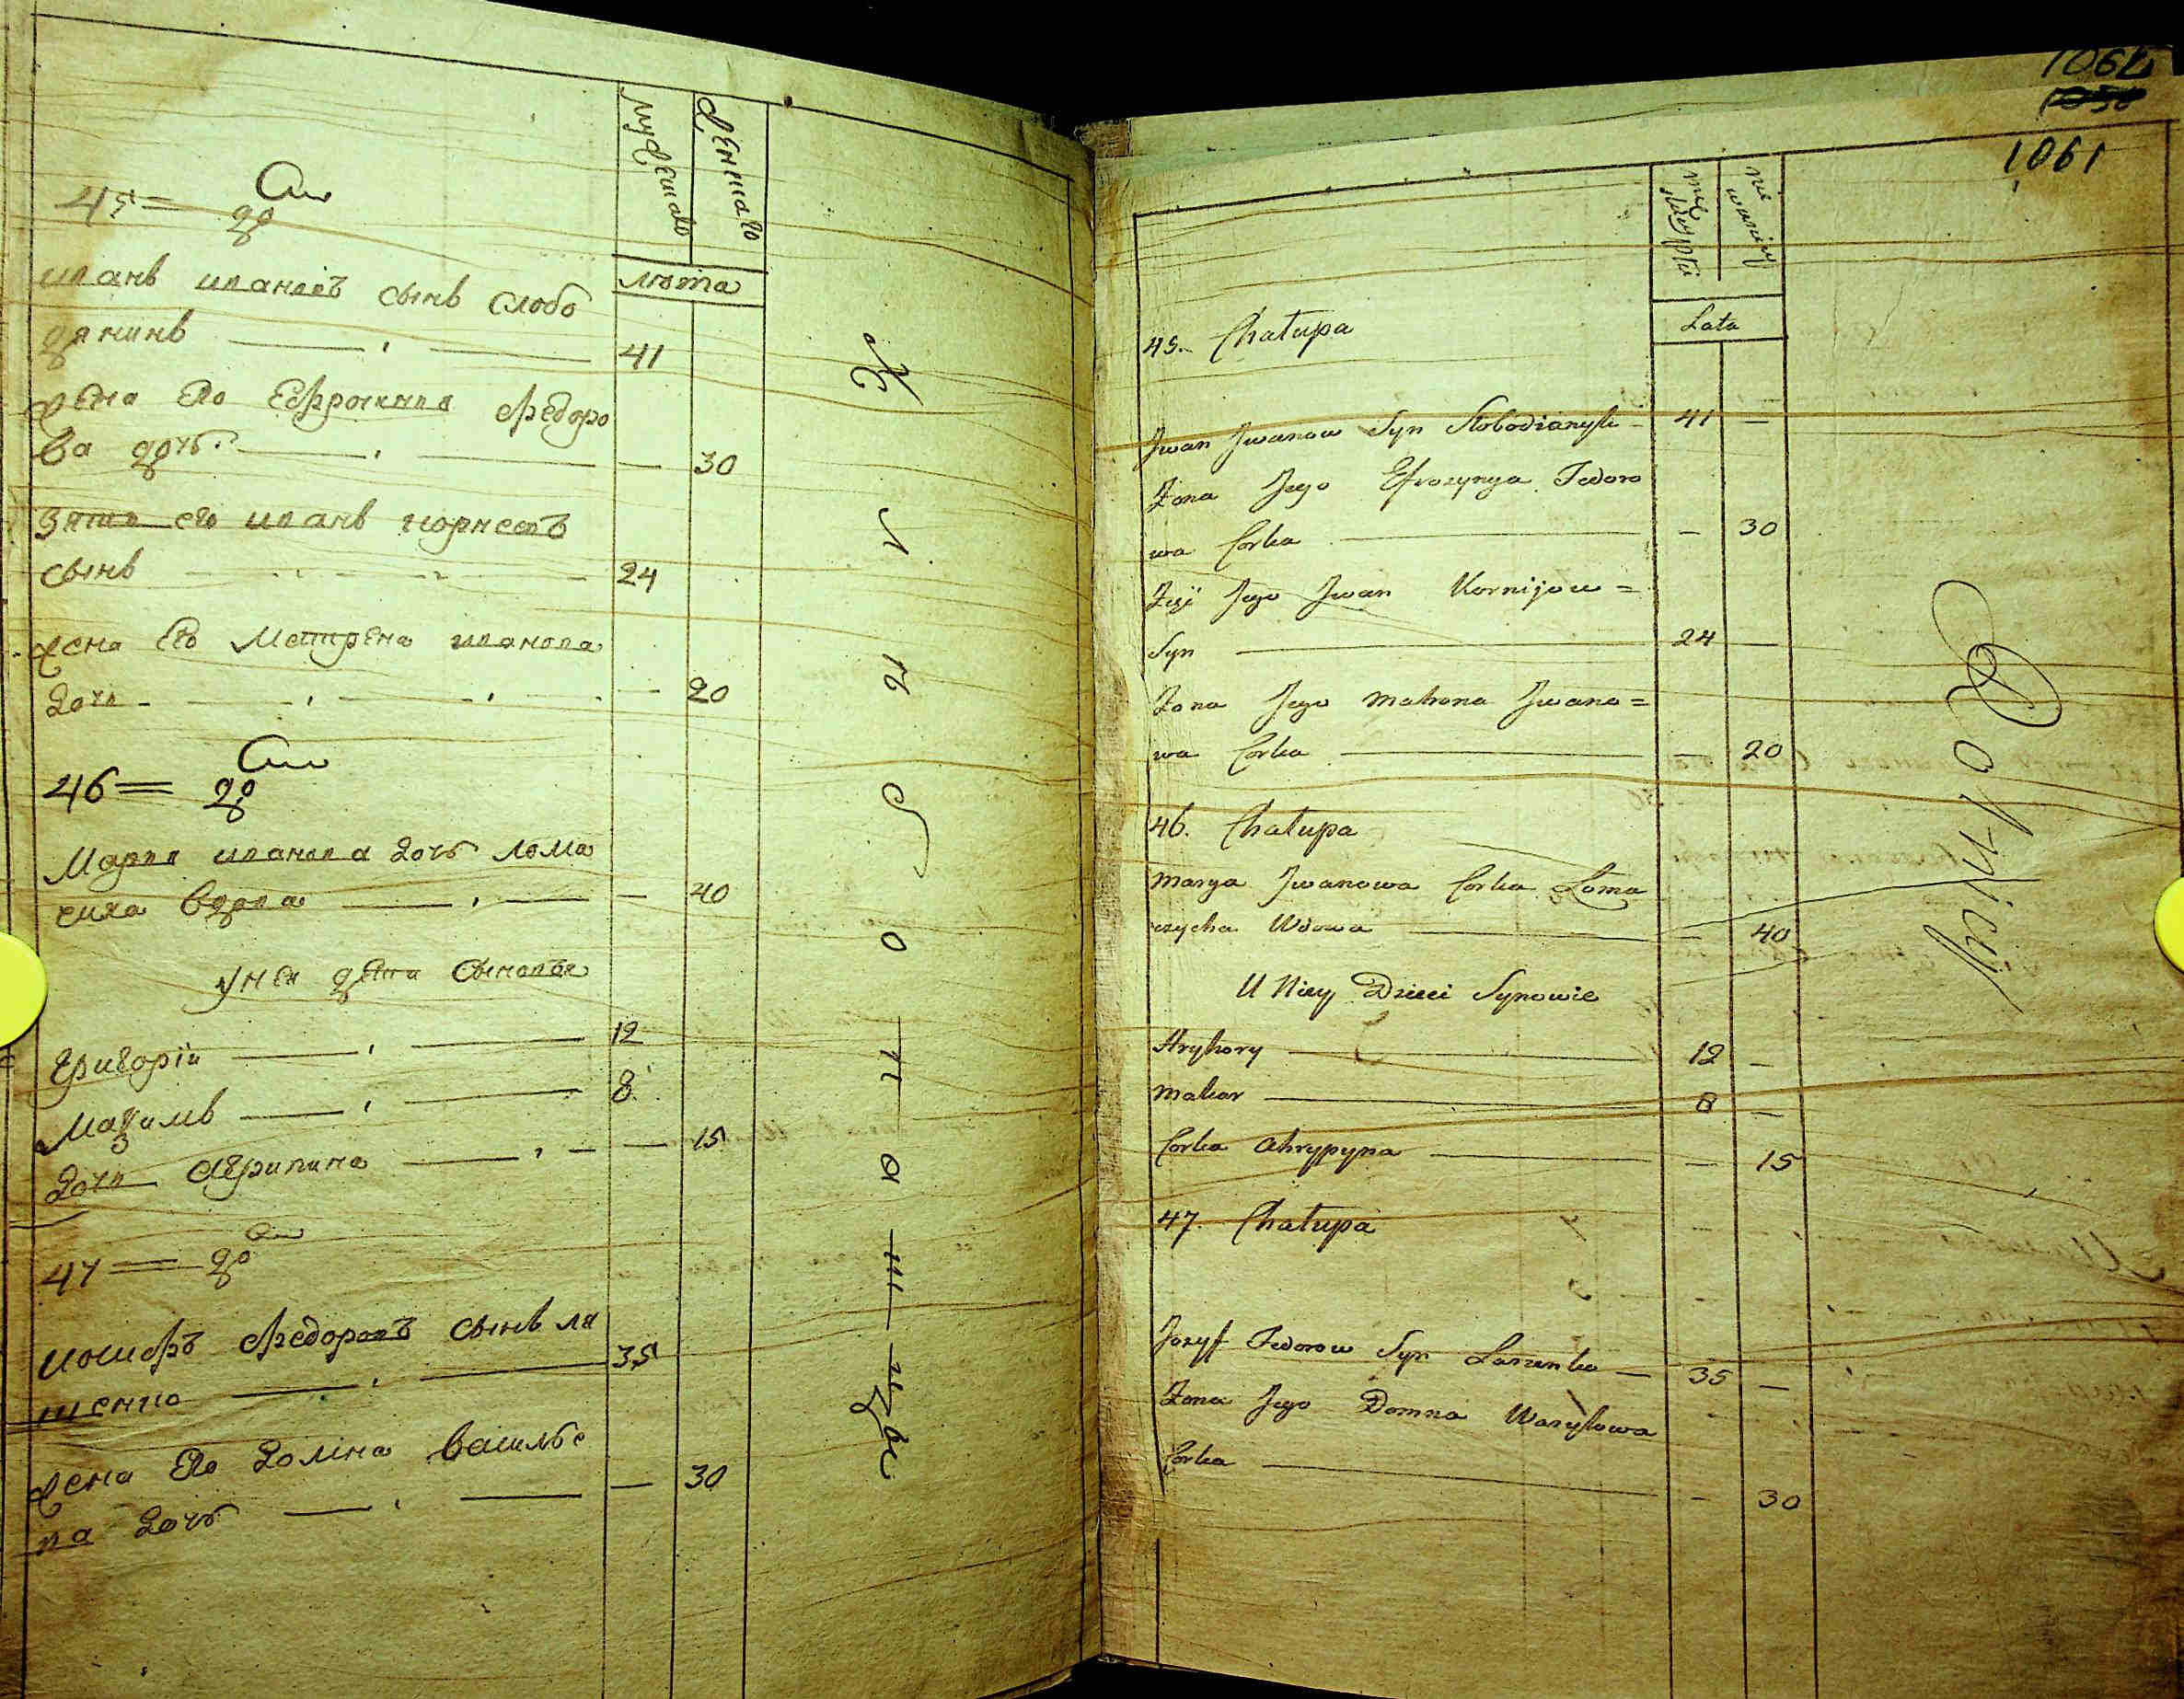 мужеска
женска го
лѣта
45 = дво
иванъ ивановъ сынъ слобо
дянинъ — 41
жена его Ефросиния федоро
ва дочь — 30
Зять его иванъ корнеевъ
сынъ — 24
жена его Матрена иванова
дочь — 20
46 = дво
Марья иванова дочь лома
чиха вдова — 40
у нея дети сыновья
Григорій — 12
Мақимъ — 8
дочь Агрипина — 15
47 = дво
иосифъ федоровъ сынъ ля
шенко — 35
жена его домна василье
ва дочь — 30
Х л ѣ б о п а ш цы
1062
1061
męskiey
Lata
45. Chałupa
Jwan Jwanow Syn Słobodianyk — 41 —
Żona Jego Efrozynya Fedoro
wa Corka — — 30
Zięć Jego Jwan Kornijow =
Syn — 24 —
Żona Jego Matrona Jwano =
wa Corka — — 20
46. Chałupa
Marya Jwanowa Corka Łoma
czycha Wdowa — — 40
U Niey Dzieci Synowie
Hryhory — 12 —
Makar — 8 —
Corka Ahrypyna — — 15
47. Chałupa
Jozyf Fedorow Syn Laszenko — 35 —
Żona Jego Domna Wasylowa
Corka — — 30
Rolnicy